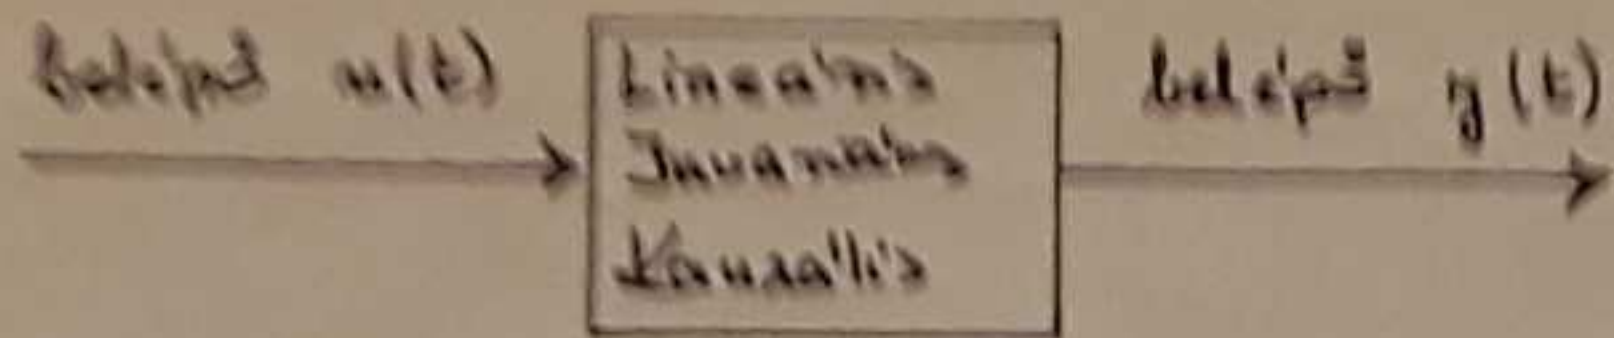 belépő u(t)
Lineáris
Invariáns
Kauzális
belépő y(t)